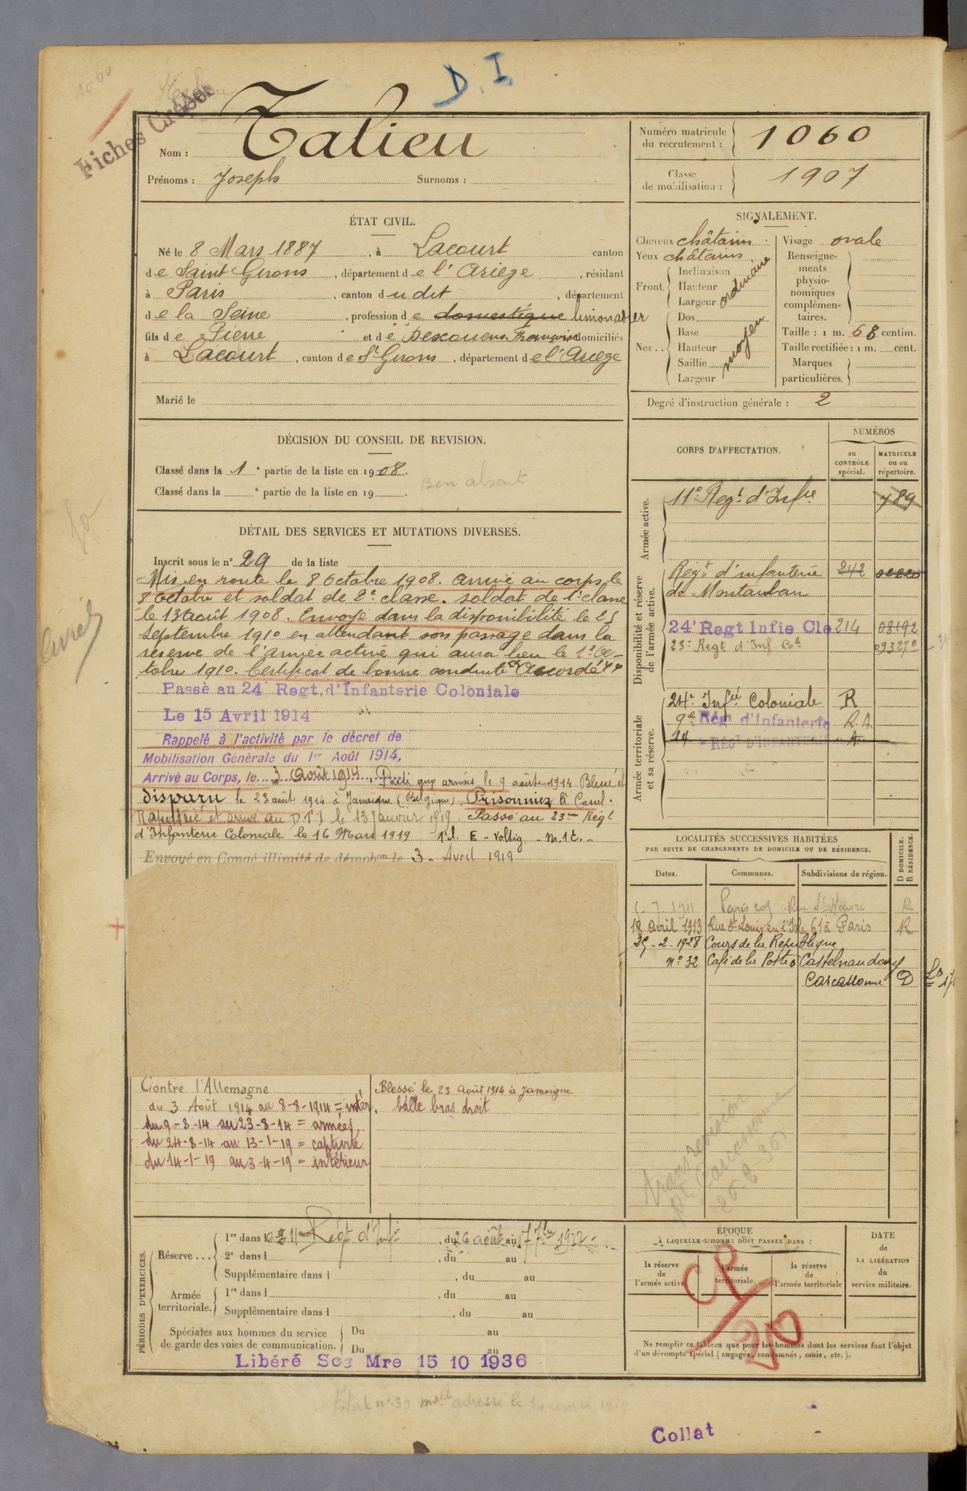 D. I.
1060
Fiches Croisées
Nom : Talieu
Prénoms : Joseph Surnoms :
Numéro matricule du recrutement : 1060
Classe de mobilisation : 1907
ÉTAT CIVIL.
Né le 8 Mars 1887, à Lacourt canton
de Saint Girons, département de l'Ariège, résidant
à Paris, canton du dit, département
de la Seine, profession de domestique limonadier
fils de Pierre et de Descouens Françoise domiciliés
à Lacourt, canton de St Girons, département de l'Ariège
Marié le
SIGNALEMENT.
Cheveux châtains.
Yeux châtains.
Front. Inclinaison
Hauteur
Largeur
ordinaire
Nez.. Dos
Base
Hauteur
Saillie
Largeur
moyen
Visage ovale
Renseignements physionomiques complémentaires.
Taille : 1 m. 68 centim.
Taille rectifiée : 1 m. cent.
Marques particulières.
Degré d'instruction générale : 2
DÉCISION DU CONSEIL DE REVISION.
Classé dans la 1e partie de la liste en 1908.
Classé dans la e partie de la liste en 19 .
Bon absent
CORPS D'AFFECTATION.
NUMÉROS
au CONTRÔLE spécial.
MATRICULE ou au répertoire.
Armée active.
11e Regt d'Infie 789
Disponibilité et réserve de l'armée active.
Régt d'infanterie 242
de Montauban
24e Regt Infie Cle 214 08192
23e Regt d'Inf. Cle
Armée territoriale et sa réserve.
24e Infie Coloniale R
9e Rég' d'Infanterie R.A
14 RÉGt D'INFANTERIE A
DÉTAIL DES SERVICES ET MUTATIONS DIVERSES.
Inscrit sous le n° 29 de la liste
Mis en route le 8 Octobre 1908. arrivé au corps le
8 Octobre et soldat de 2e classe. soldat de 1e classe
le 13 août 1908. Envoyé dans la disponibilité le 25
Septembre 1910 en attendant son passage dans la
réserve de l'armée active qui aura lieu le 1er Oc-
tobre 1910. Certificat de bonne conduite Accordé
Passé au 24e Regt. d'Infanterie Coloniale
Le 15 Avril 1914
Rappelé à l'activité par le décret de
Mobilisation Générale du 1er Août 1914,
Arrivé au Corps, le 3 Août 1914, Parti aux armées le 9 août 1914. Blessé et
disparu le 23 août 1914 à Jamoigne (Belgique), Prisonnier
Rapatrié et arrivé au D I le 13 janvier 1919. Passé au 23me Regt
d'Infanterie Coloniale le 16 Mars 1919
Envoyé en Congé illimité de démobon le 3 Avril 1919
LOCALITÉS SUCCESSIVES HABITÉES
PAR SUITE DE CHANGEMENTS DE DOMICILE OU DE RÉSIDENCE.
Dates. Communes. Subdivisions de région. D DOMICILE. R RÉSIDENCE.
7 1911 Paris R
18 avril 1913 Rue St Louis en l'Ile 61 à Paris R
25-2-1928 Cours de la République
n° 32 Café de la Poste Castelnaudary
Carcassonne D
Contre l'Allemagne
du 3 Août 1914 au 8-8-1914 = intér.
du 9-8-14 au 23-8-14 = armées
du 24-8-14 au 13-1-19 = captivité
du 14-1-19 au 3-4-19 = intérieur
Blessé le 23 Août 1914 à Jamoigne
balle bras droit
PÉRIODES D'EXERCICES.
Réserve ... 1re dans le 11me Régt d'Infie, du 26 août au 17 7bre 1912.
2e dans l , du au
Supplémentaire dans l , du au
Armée territoriale. 1re dans l , du au
Supplémentaire dans l , du au
Spéciales aux hommes du service de garde des voies de communication. Du au
Du au
Libéré Sce Mre 15 10 1936
ÉPOQUE
À LAQUELLE L'HOMME DOIT PASSER DANS :
la réserve de l'armée active
l'armée territoriale.
la réserve de l'armée territoriale
DATE de LA LIBÉRATION du service militaire.
Ne remplir ce tableau que pour les hommes dont les services font l'objet
d'un décompte spécial (engagés, condamnés, omis, etc.).
CP
20
Collat